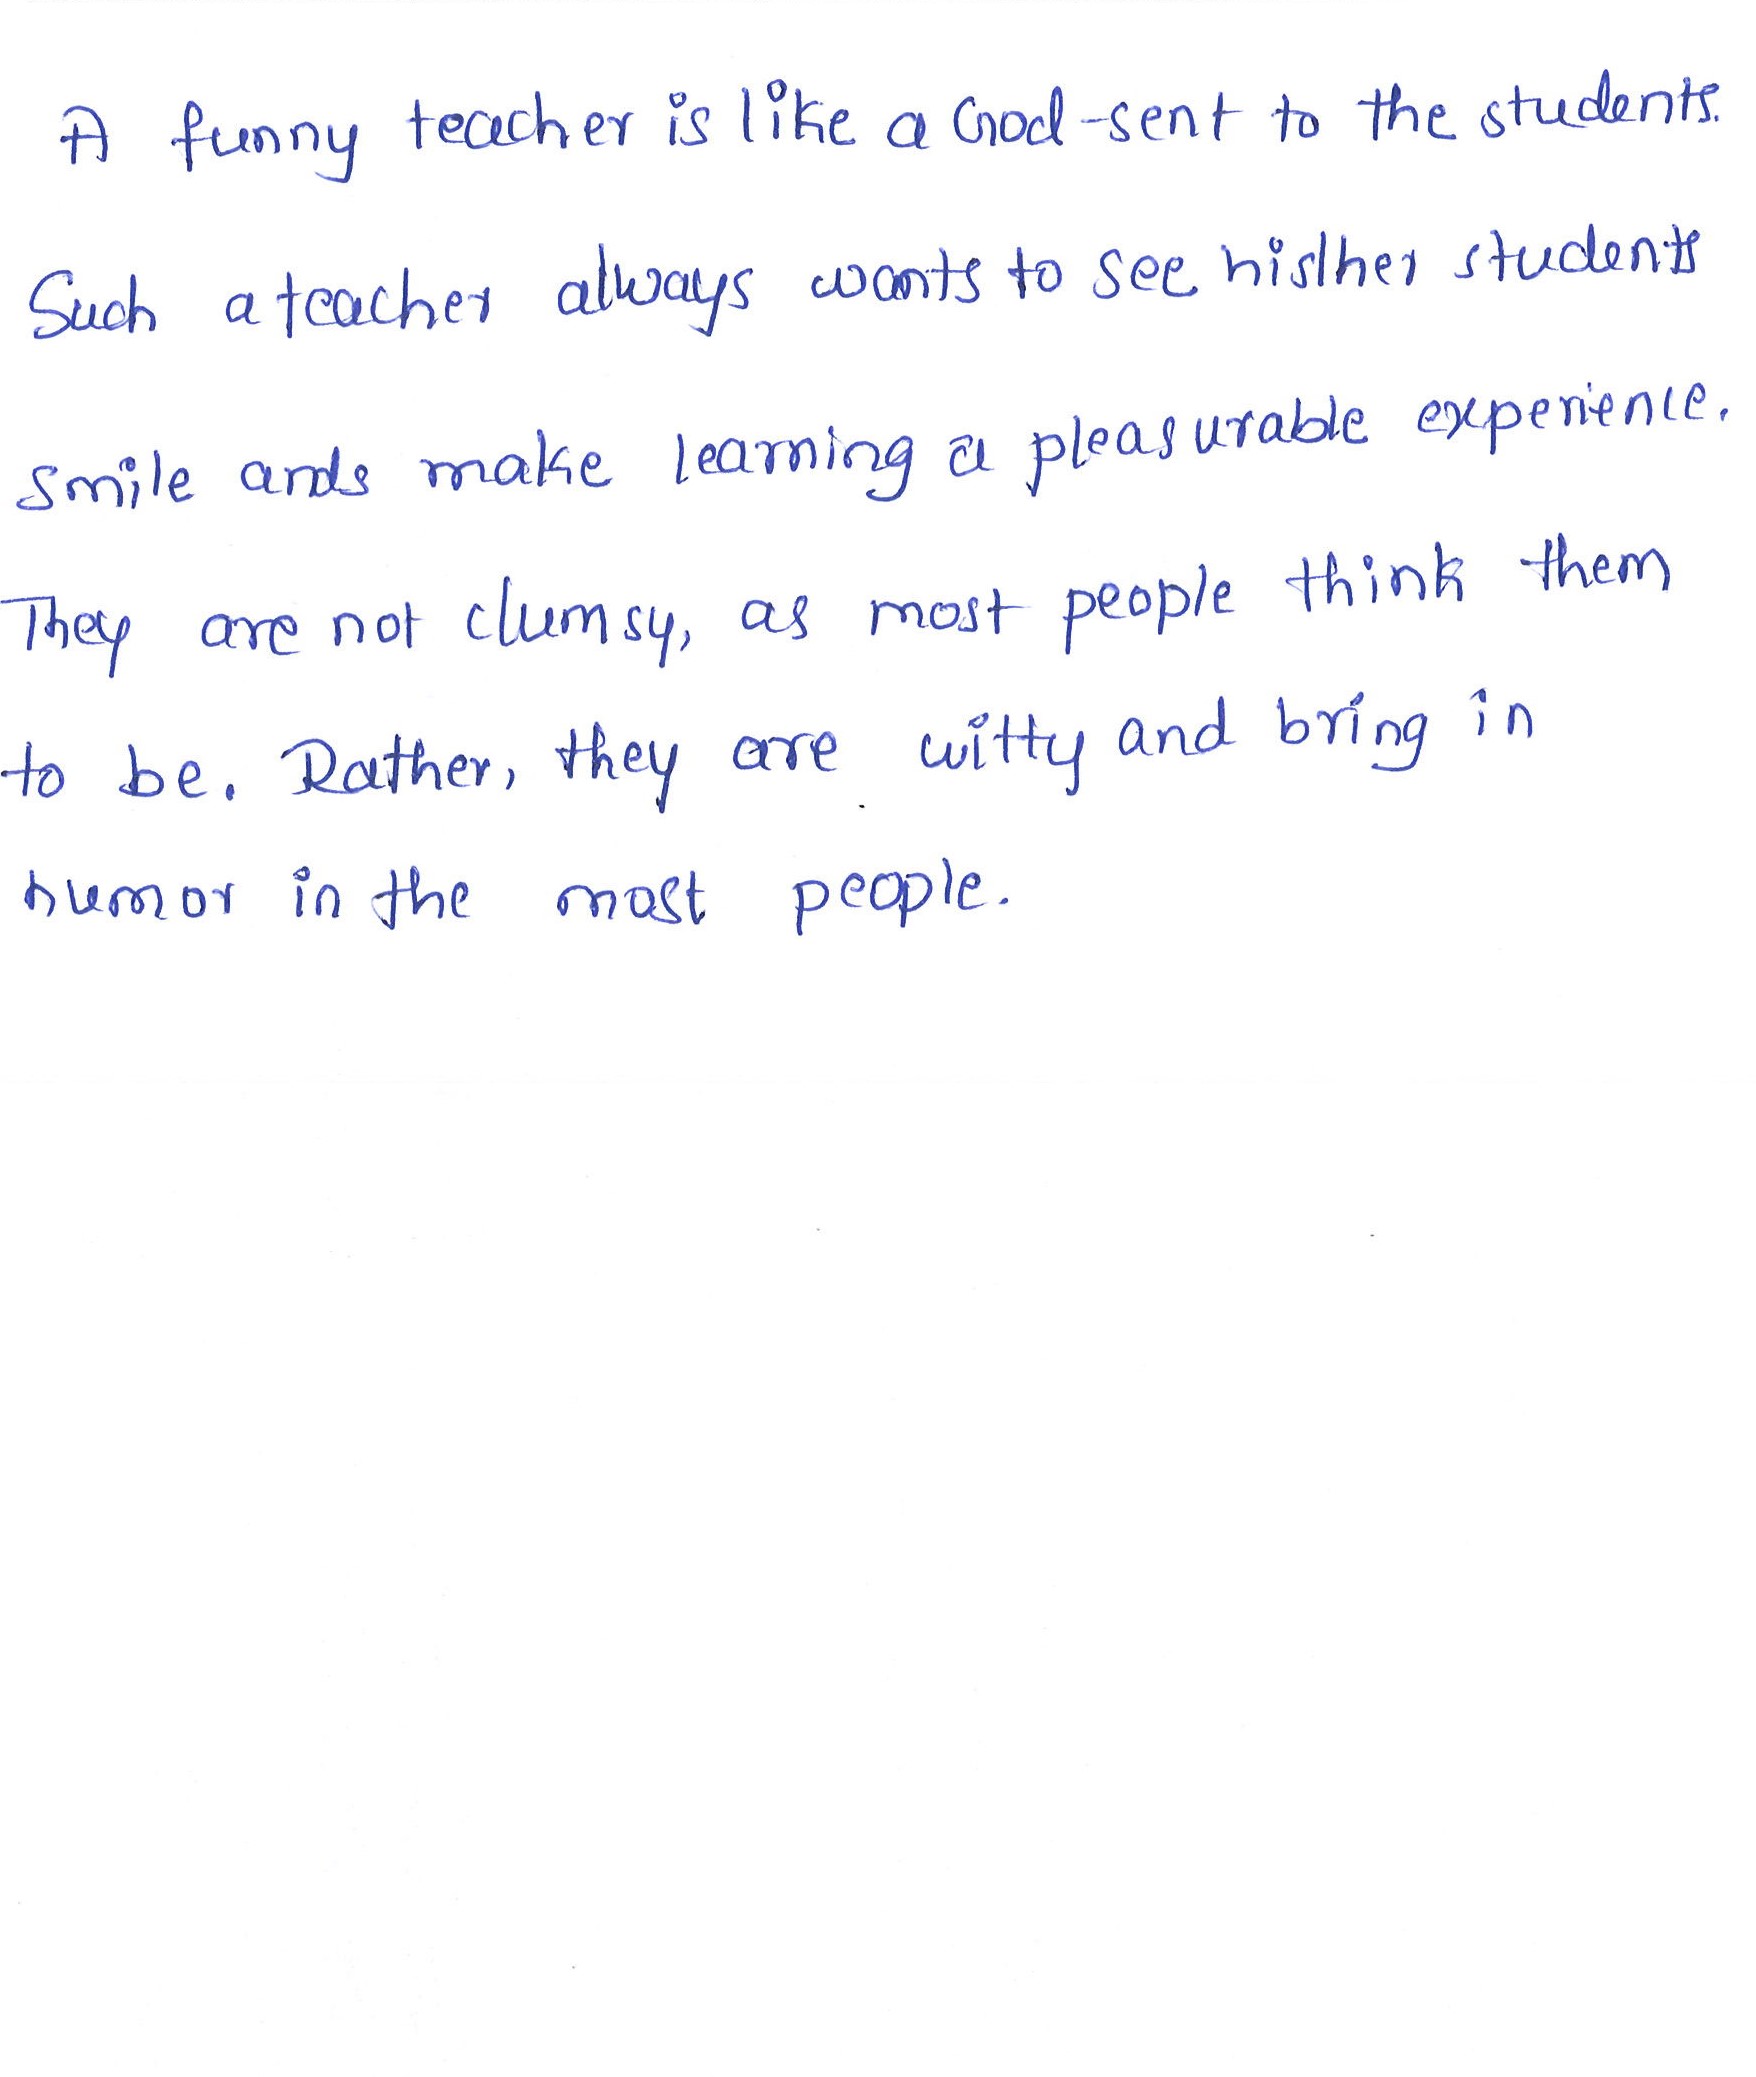 A funny teacher is like a God-sent to the students.
Such a teacher always wants to see his/her students
smile ands make learning a pleasurable experience.
They are not clumsy, as most people think them
to be. Rather, they are witty and bring in
humor in the most people.